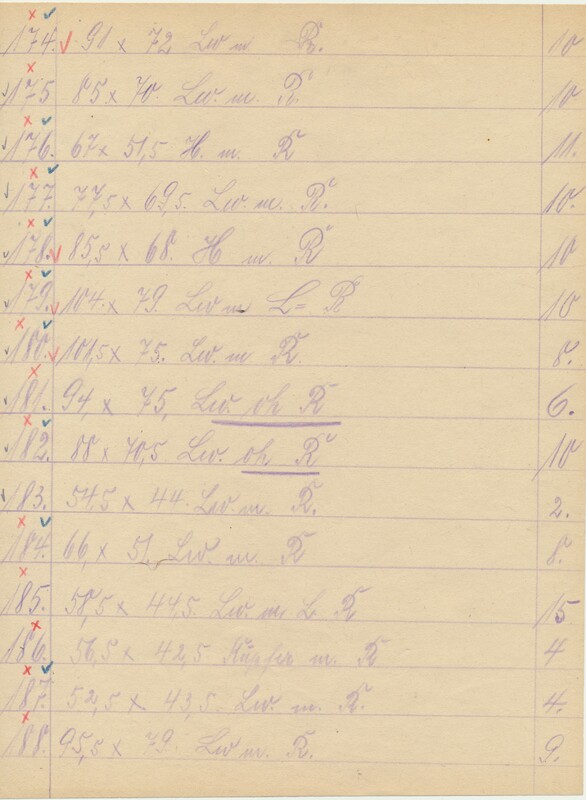 174. 91 x 72 Lw m. R. 10
175 85 x 70. Lw. m. R. 10
176. 67 x 51,5 H. m. R 11.
177. 77,5 x 69,5. Lw. m. R. 10.
178. 85,5 x 68. H m. R 10
179. 104. x 79. Lw m L= R 10
180. 101,5 x 75. Lw. m R. 8.
181. 94, x 75, Lw. oh R 6.
182. 88 x 70,5 Lw. oh. R 10
183. 54,5 x 44. Lw. m. R. 2.
184. 66, x 51. Lw. m. R 8.
185. 58,5 x 44,5. Lw. m. L. R 15
186. 56,5 x 42,5. Kupfer m. R 4
187. 52,5 x 43,5. Lw. m. R. 4.
188. 95,5 x 79. Lw m. R. 9.